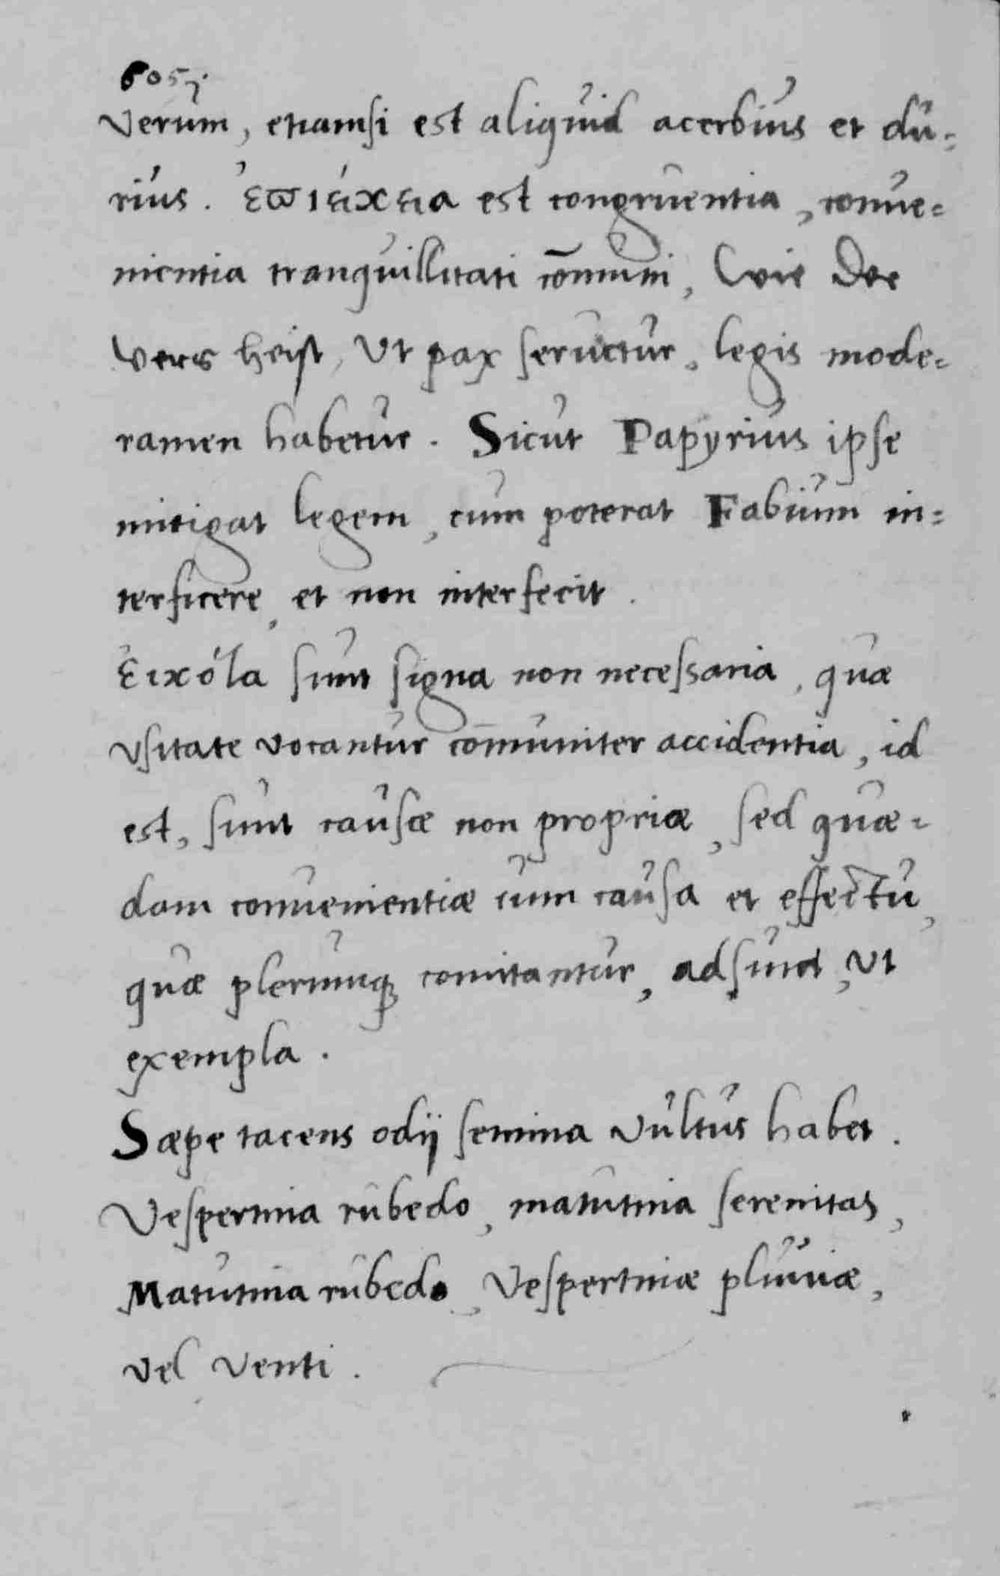 6057.
Verum, etiamsi est aliquid acerbius et du-
rius. ἐπιείκεια est congruentia, conue-
nientia tranquillitati cōmuni, Wie Der
Vers heist, Ut pax seructur, legis mode-
ramen habetur. Sicut Papyrius ipse
mitigat legem, cum poterat Fabium in-
terficere, et non interfecit.
εἰκόlα sunt signa non necessaria, quæ
vsitate vocantur cōmuniter accidentia, id
est, sunt causæ non propriæ, sed quæ-
dam conuenientiæ cum causa et effectu,
quæ plerumq; comitantur, adsunt, Ut
exempla.
Sæpe tacens odij semina Vultus habet.
Vespertina rubedo, matutina serenitas,
Matutina rubedo, Vespertinæ pluuiæ,
vel Venti.